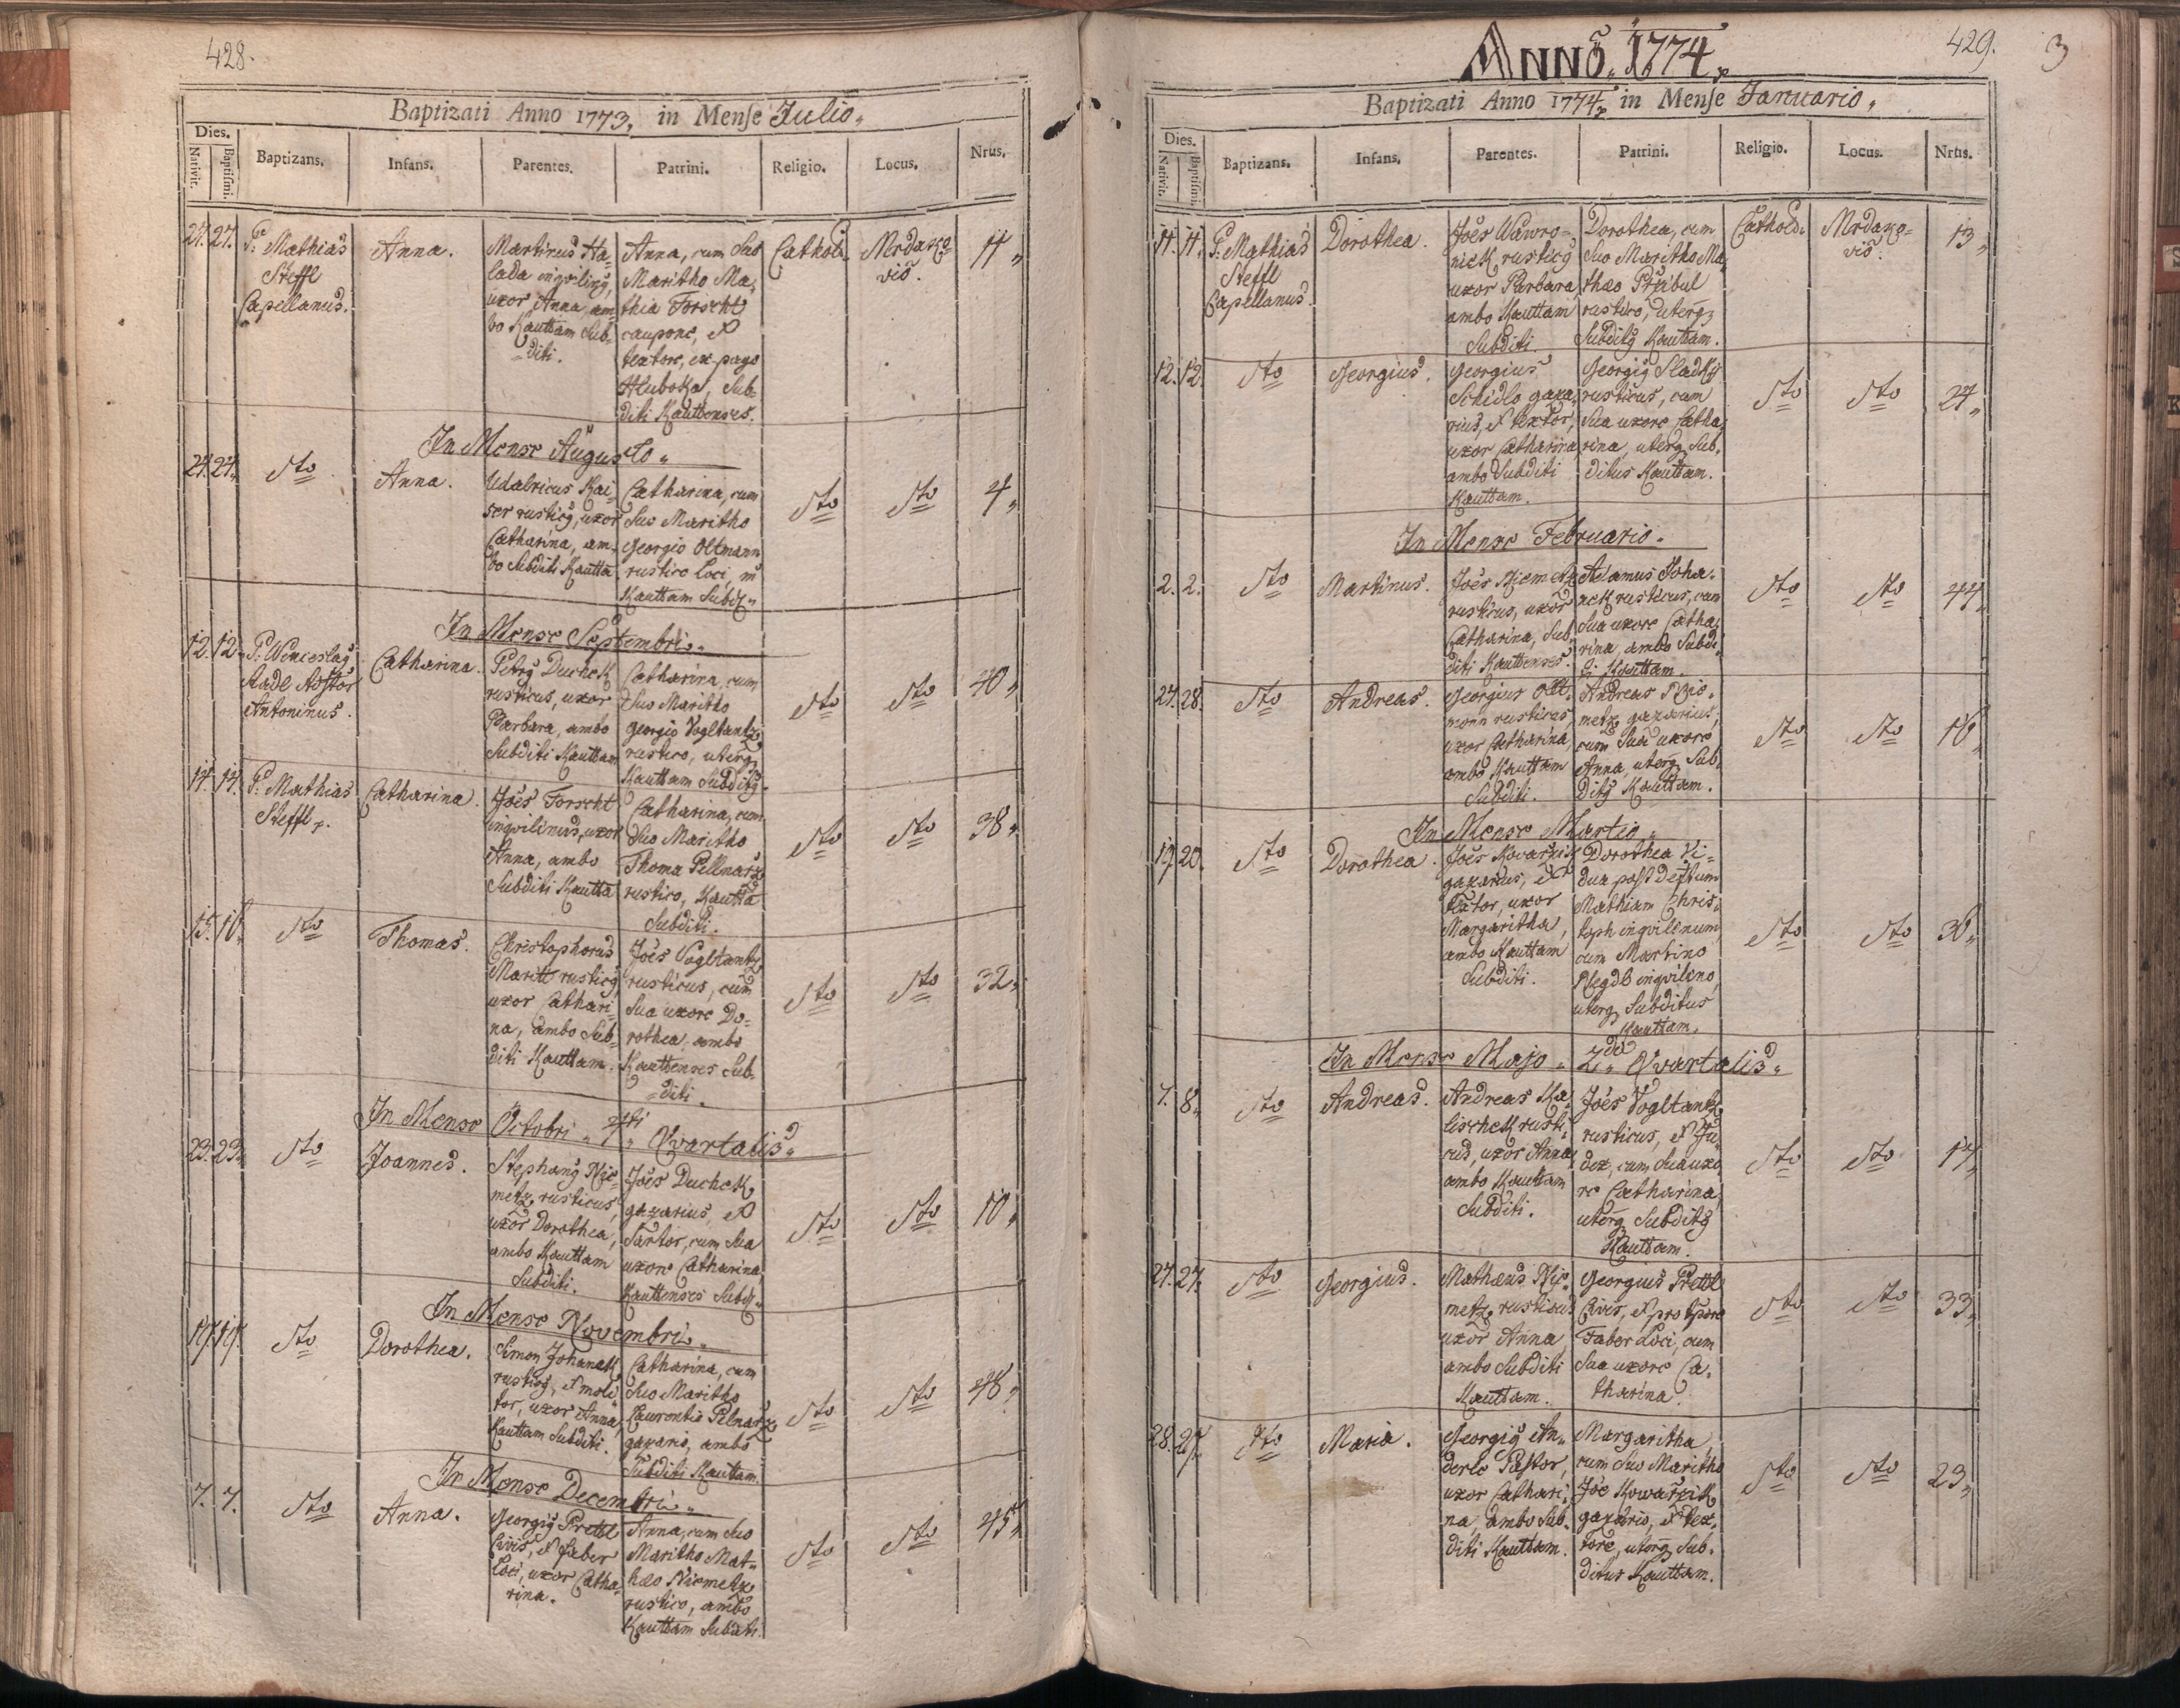 428.
Baptizati Anno 1773, in Mense Julio
Dies.
Nativit.
Baptismi.
Baptizans.
Infans.
Parentes.
Patrini.
Religio.
Locus.
Nrus.
27. 27.
P: Mathias
Steffl
Capellanus.
Anna.
Martinus Ha-
lada inqvilinꝰ,
uxor Anna, am-
bo Kauttam Sub-
diti.
Anna, cum Suo
Maritho Ma-
thia Forscht
caupone, et
textore, ex pago
Hluboka, Sub-
diti Kauttenses.
Cathol:
Mrdako-
vio.
11
In Mense Augusto
24. 24.
dto
Anna.
Udalricus Kai-
ser rusticꝰ, uxor
Catharina, am-
bo Subditi Kautta
Catharina, cum
Suo Maritho
Georgio Oltmann
rustico Loci, in
Kauttam Subd:
dto
dto
4
In Mense Septembri
12. 12.
P: Wenceslaꝰ
Antoninus.
Catharina.
Petrꝰ Duchek
rusticus, uxor
Barbara, ambo
Subditi Kauttam
Catharina, cum
Suo Maritho
Georgio Vogltantz
rustico, uterq,
Kauttam Subditꝰ
dto
dto
40
14. 14.
P: Mathias
Steffl
Catharina.
Joēs Forscht
inqvilinus, uxor
Anna, ambo
Subditi Kautta
Catharina, cum
Suo Maritho
Thoma Pellnarz
rustico, Kautta
Subditi.
dto
dto
38
15. 16.
dto
Thomas.
Christophorus
Maritt rusticꝰ
uxor Cathari-
na, ambo Sub-
diti Kauttam.
Joēs Vogltantz
rusticus, cum
Sua uxore Do-
rothea, ambo
Kauttenses Sub-
diti.
dto
dto
32
In Mense Octobri 4ti Qvartalis
23. 23.
dto
Joannes.
Stephanꝰ Nie-
metz, rusticus,
uxor Dorothea,
ambo Kauttam
Subditi.
Joēs Duchek
gazarius, et
Sartor, cum Sua
uxore Catharina,
Kauttenses Subd:
dto
dto
10
In Mense Novembri
19. 19.
dto
Dorothea.
Simon Johanek
rusticꝰ, et moli-
tor, uxor Anna,
Kauttam Subditi.
Catharina, cum
Suo Maritho
Laurentio Pelnarz
gazario, ambo
Subditi Kauttam.
dto
dto
48
In Mense Decembri
7. 7.
dto
Anna.
Georgiꝰ Prettl
Civis, et faber
Loci, uxor Catha-
rina.
Anna, cum Suo
Maritho Mat-
hæo Niemetz
rustico, ambo
Kauttam Subditi.
dto
dto
45
ANNO 1774
429.
3
Baptizati Anno 1774, in Mense Januario
Dies.
Nativit.
Baptismi.
Baptizans.
Infans.
Parentes.
Patrini.
Religio.
Locus.
Nrus.
11. 11.
P: Mathias
Steffl
Capellanus.
Dorothea.
Joēs Wawro-
nick rusticꝰ
uxor Barbara
ambo Kauttam
Subditi.
Dorothea, cum
Suo Maritho Ma-
thæo Přzibul
rustico, uterq,
Subditꝰ Kauttam.
Cathol:
Mrdako-
vio.
13
12. 12.
dto
Georgius.
Georgius
Schidlo gaza-
rius, et textor,
uxor Catharina
ambo Subditi
Kauttam.
Georgiꝰ Sladky
rusticus, cum
Sua uxore Catha-
rina, uterq, Sub-
ditus Kauttam.
dto
dto
24
In Mense Februario
2. 2.
dto
Martinus.
Joēs Niemetz
rusticus, uxor
Catharina, Sub-
diti Kauttenses.
Adamus Joha-
nek rusticus, cum
Sua uxore Catha-
rina, ambo Subdi-
ti Kauttam.
dto
dto
44
27. 28.
dto
Andreas.
Georgius Olt-
mann rusticus,
uxor Catharina
ambo Kauttam
Subditi.
Andreas Nie-
metz, gazarius,
cum Sua uxore
Anna, uterq, Sub-
ditꝰ Kauttam.
dto
dto
16
In Mense Martio
19. 20.
dto
Dorothea.
Joēs Kovarzik
gazarius, et
textor, uxor
Margaritha,
ambo Kauttam
Subditi.
Dorothea Vi-
dua post deftum
Mathiam Chris-
toph inqvilinum,
cum Martino
inqvilino,
uterq, Subditus
Kauttam.
dto
dto
36
In Mense Majo 2di Qvartalis
7. 8.
dto
Andreas.
Andreas Ka-
lischek rusti-
cus, uxor Anna
ambo Kauttam
Subditi.
Joēs Vogltantz
rusticus, et Ju-
dex, cum Sua uxo-
re Catharina,
uterq, Subditꝰ
Kauttam.
dto
dto
17
27. 27.
dto
Georgius.
Mathæus Nie-
metz, rusticus
uxor Anna
ambo Subditi
Kauttam.
Georgius Prettl
Civis, et pro tpore
Faber Loci, cum
Sua uxore Ca-
tharina.
dto
dto
33
28. 29.
dto
Maria.
Georgiꝰ An-
derle Pastor,
uxor Cathari-
na, ambo Sub-
diti Kauttam.
Margaritha,
cum Suo Maritho
Joe Kowarzik
gazario, et tex-
tore, uterq, Sub-
ditus Kauttam.
dto
dto
23